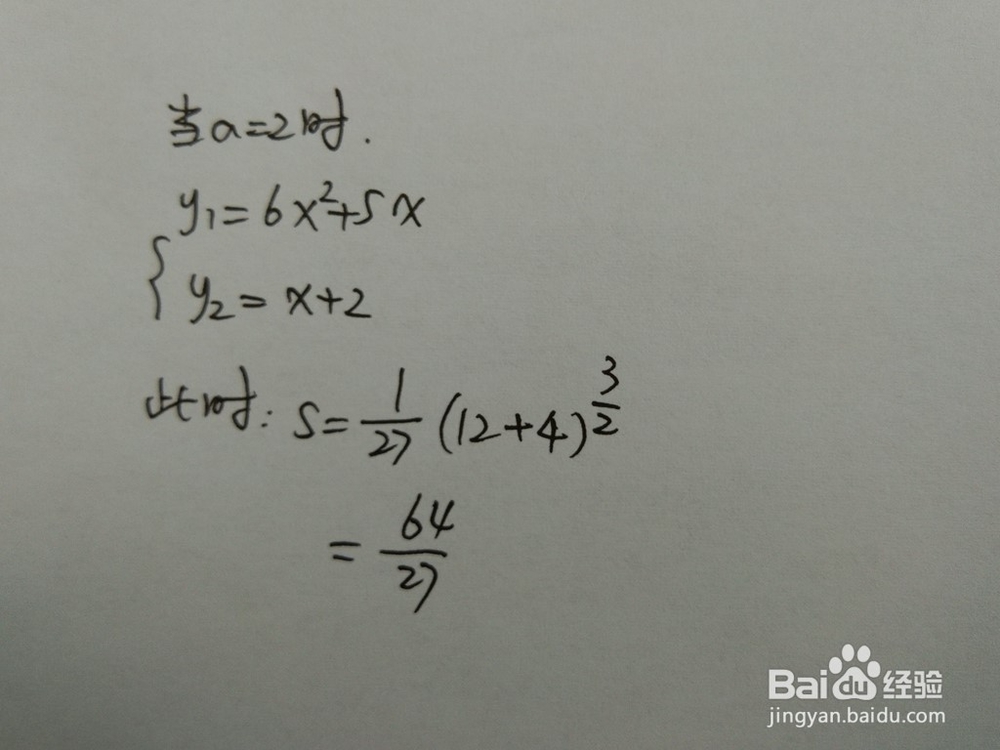 当a=2时.
y₁=6x²+5x
{ y₂=x+2
此时: S=1/27(12+4)^(3/2)
=64/27
Baidu经验
jingyan.baidu.com